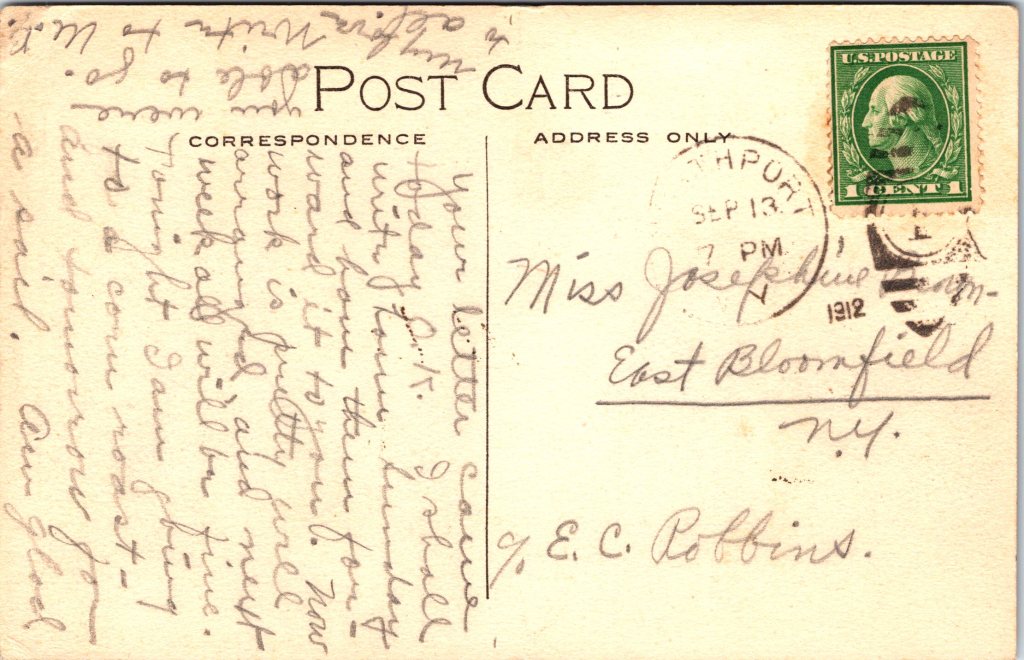 POST CARD
CORRESPONDENCE
ADDRESS ONLY
U.S. POSTAGE
1 CENT 1
THPORT
SEP 13
7 PM
N
1912
Miss Josephine
East Bloomfield
N.Y.
c/o E. C. Robbins.
Your letter came
today O.K. I shall
write home Sunday
and have them for-
ward it to you. Now
work is pretty well
arranged and next
week all will be fine.
Tonight I am going
to a corn roast-
and tomorrow for
as said. Am glad
you were
able to go.
Write to